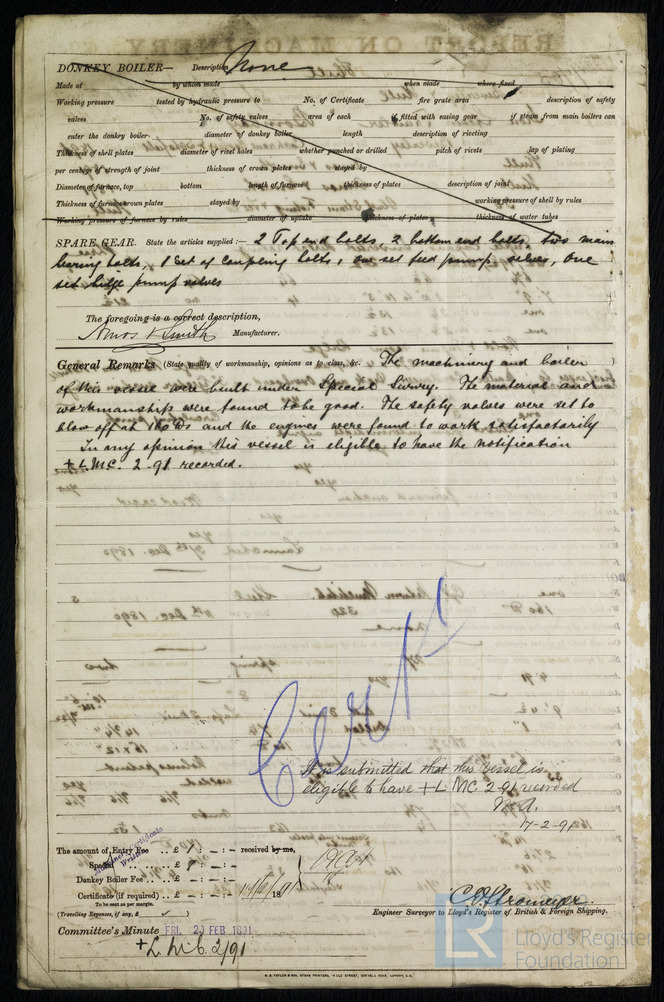 DONKEY BOILER— Description None
Made at by whom made when made where fixed
Working pressure tested by hydraulic pressure to No. of Certificate fire grate area description of safety
valves No. of safety valves area of each if fitted with easing gear if steam from main boilers can
enter the donkey boiler diameter of donkey boiler length description of riveting
Thickness of shell plates diameter of rivet holes whether punched or drilled pitch of rivets lap of plating
per centage of strength of joint thickness of crown plates stayed by
Diameter of furnace, top bottom length of furnace thickness of plates description of joint
Thickness of furnace crown plates stayed by working pressure of shell by rules
Working pressure of furnace by rules diameter of uptake thickness of plates thickness of water tubes
SPARE GEAR. State the articles supplied :— 2 Top end bolts, 2 bottom end bolts, two main
bearing bolts, 1 set of coupling bolts, one set feed pump valves, one
set bilge pump valves
The foregoing is a correct description,
Amos & Smith Manufacturer.
General Remarks (State quality of workmanship, opinions as to class, &c. The machinery and boiler
of this vessel were built under Special Survey. The material and
workmanship were found to be good. The safety valves were set to
blow off at 160 lbs and the engines were found to work satisfactorily
In my opinion this vessel is eligible to have the notification
+ L.M.C. 2-91 recorded.
Cert
It is submitted that this vessel is
eligible to have + L MC 2-91 recorded
17-2-91
The amount of Entry Fee .. £ 1 : — : — received by me,
Special .. £ 8 : — : —
Donkey Boiler Fee .. £ — : — : —
Certificate (if required) .. £ — : — : — 18 91
To be sent as per margin.
(Travelling Expenses, if any, £ )
C. E. Stromeyer.
Engineer Surveyor to Lloyd's Register of British & Foreign Shipping.
Committee's Minute FRI. 20 FEB 1891
+ L.M.C. 2/91
LR Lloyd's Register
Foundation